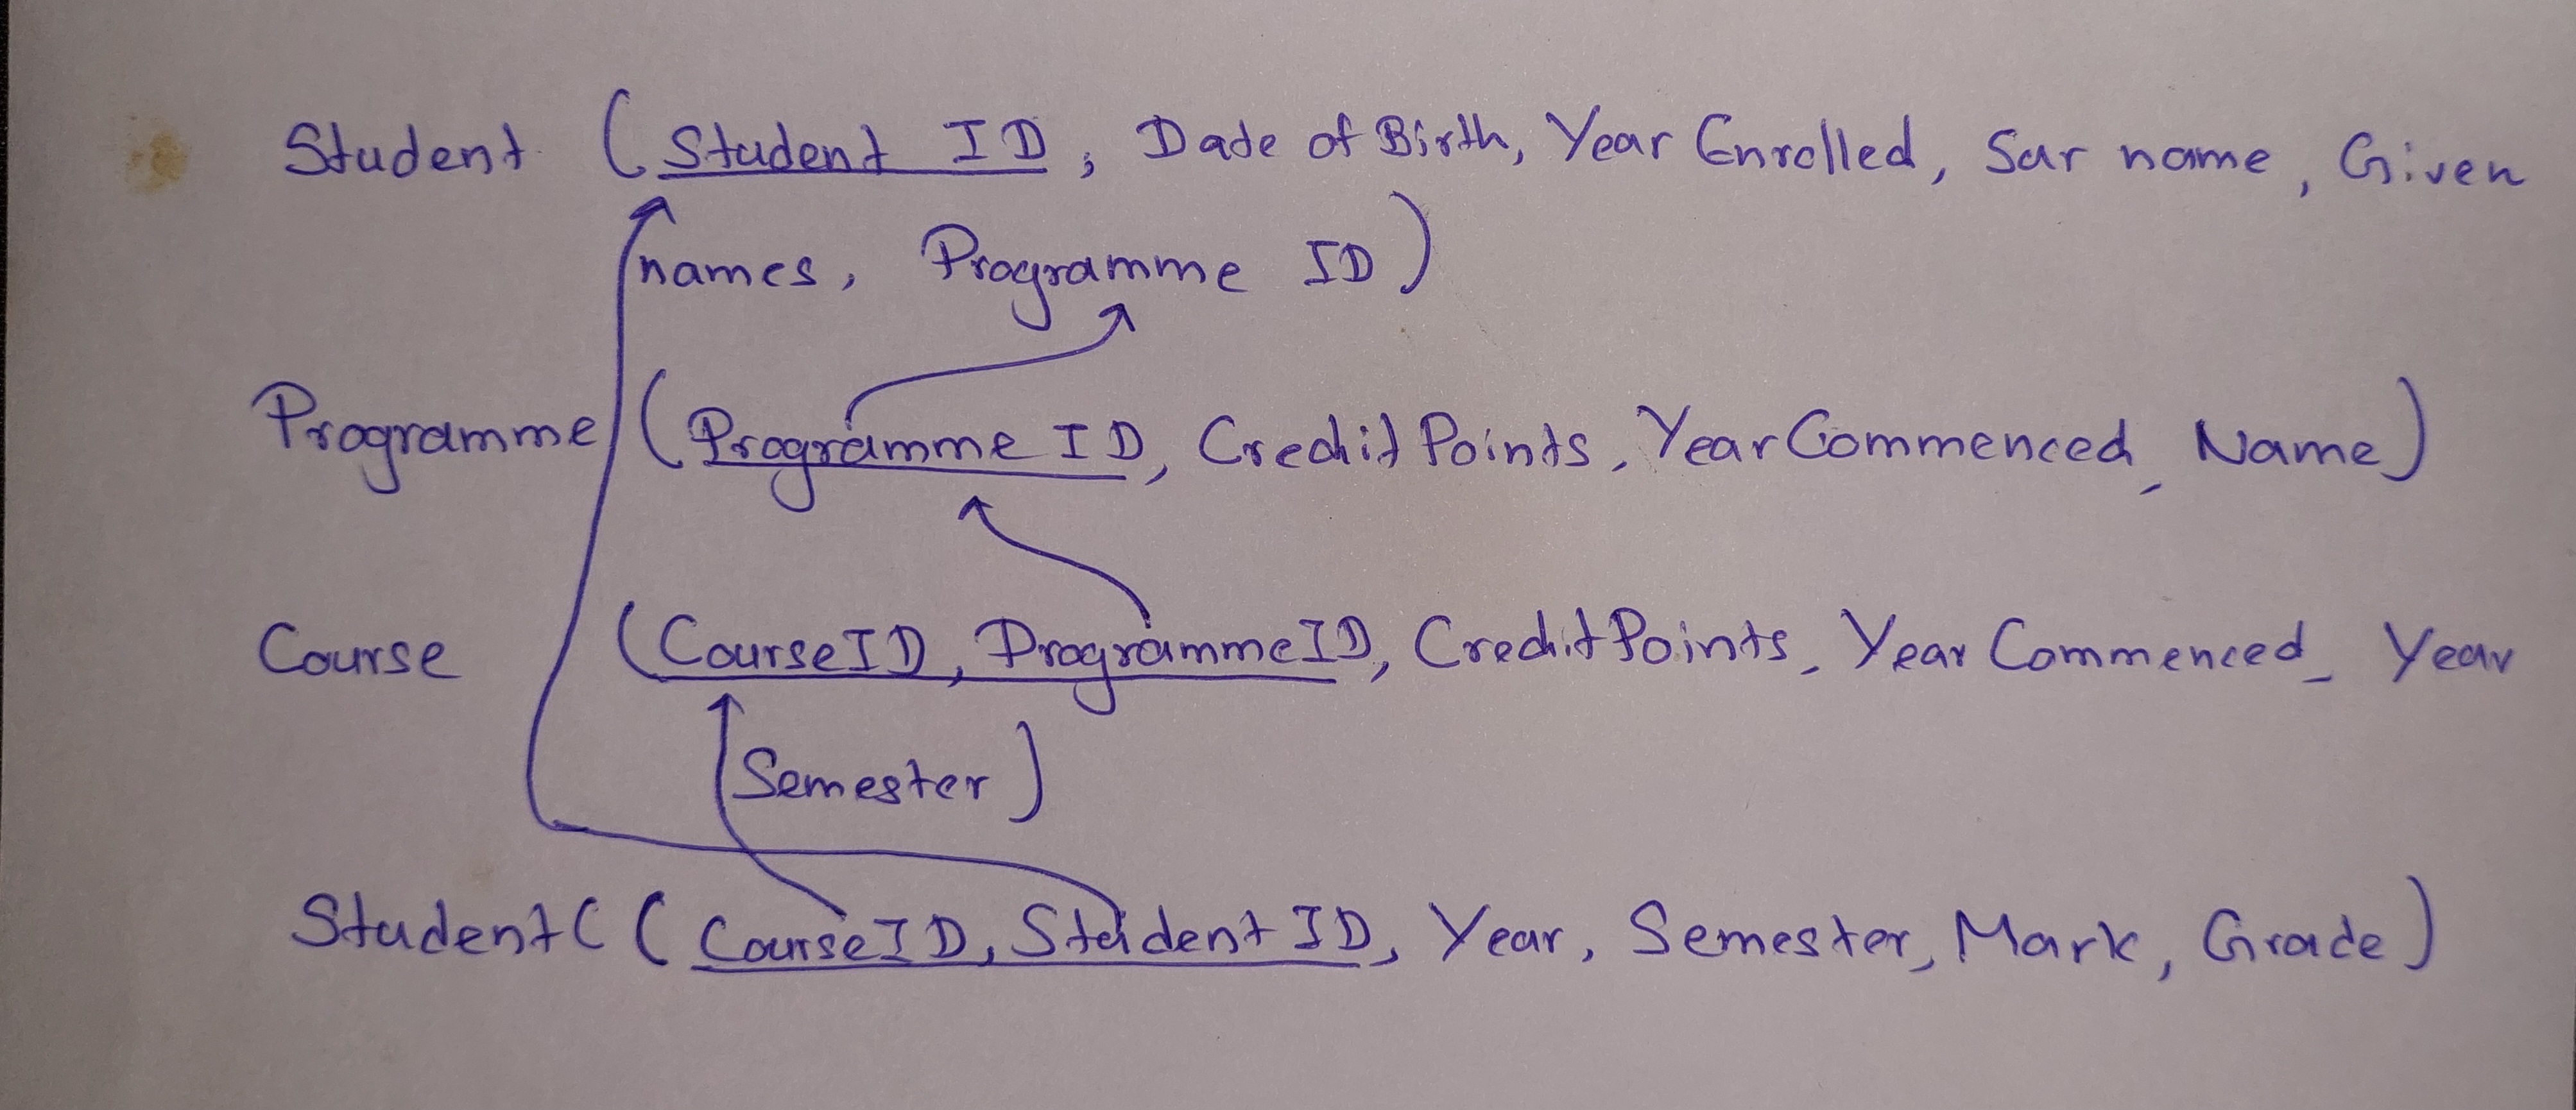 Student (Student ID, Date of Birth, Year Enrolled, Sur name, Given
names, Programme ID)
Programme (Programme ID, Credit Points, Year Commenced, Name)
Course (CourseID, ProgrammeID, Credit Points, Year Commenced, Year
Semester)
StudentC (CourseID, Student ID, Year, Semester, Mark, Grade)